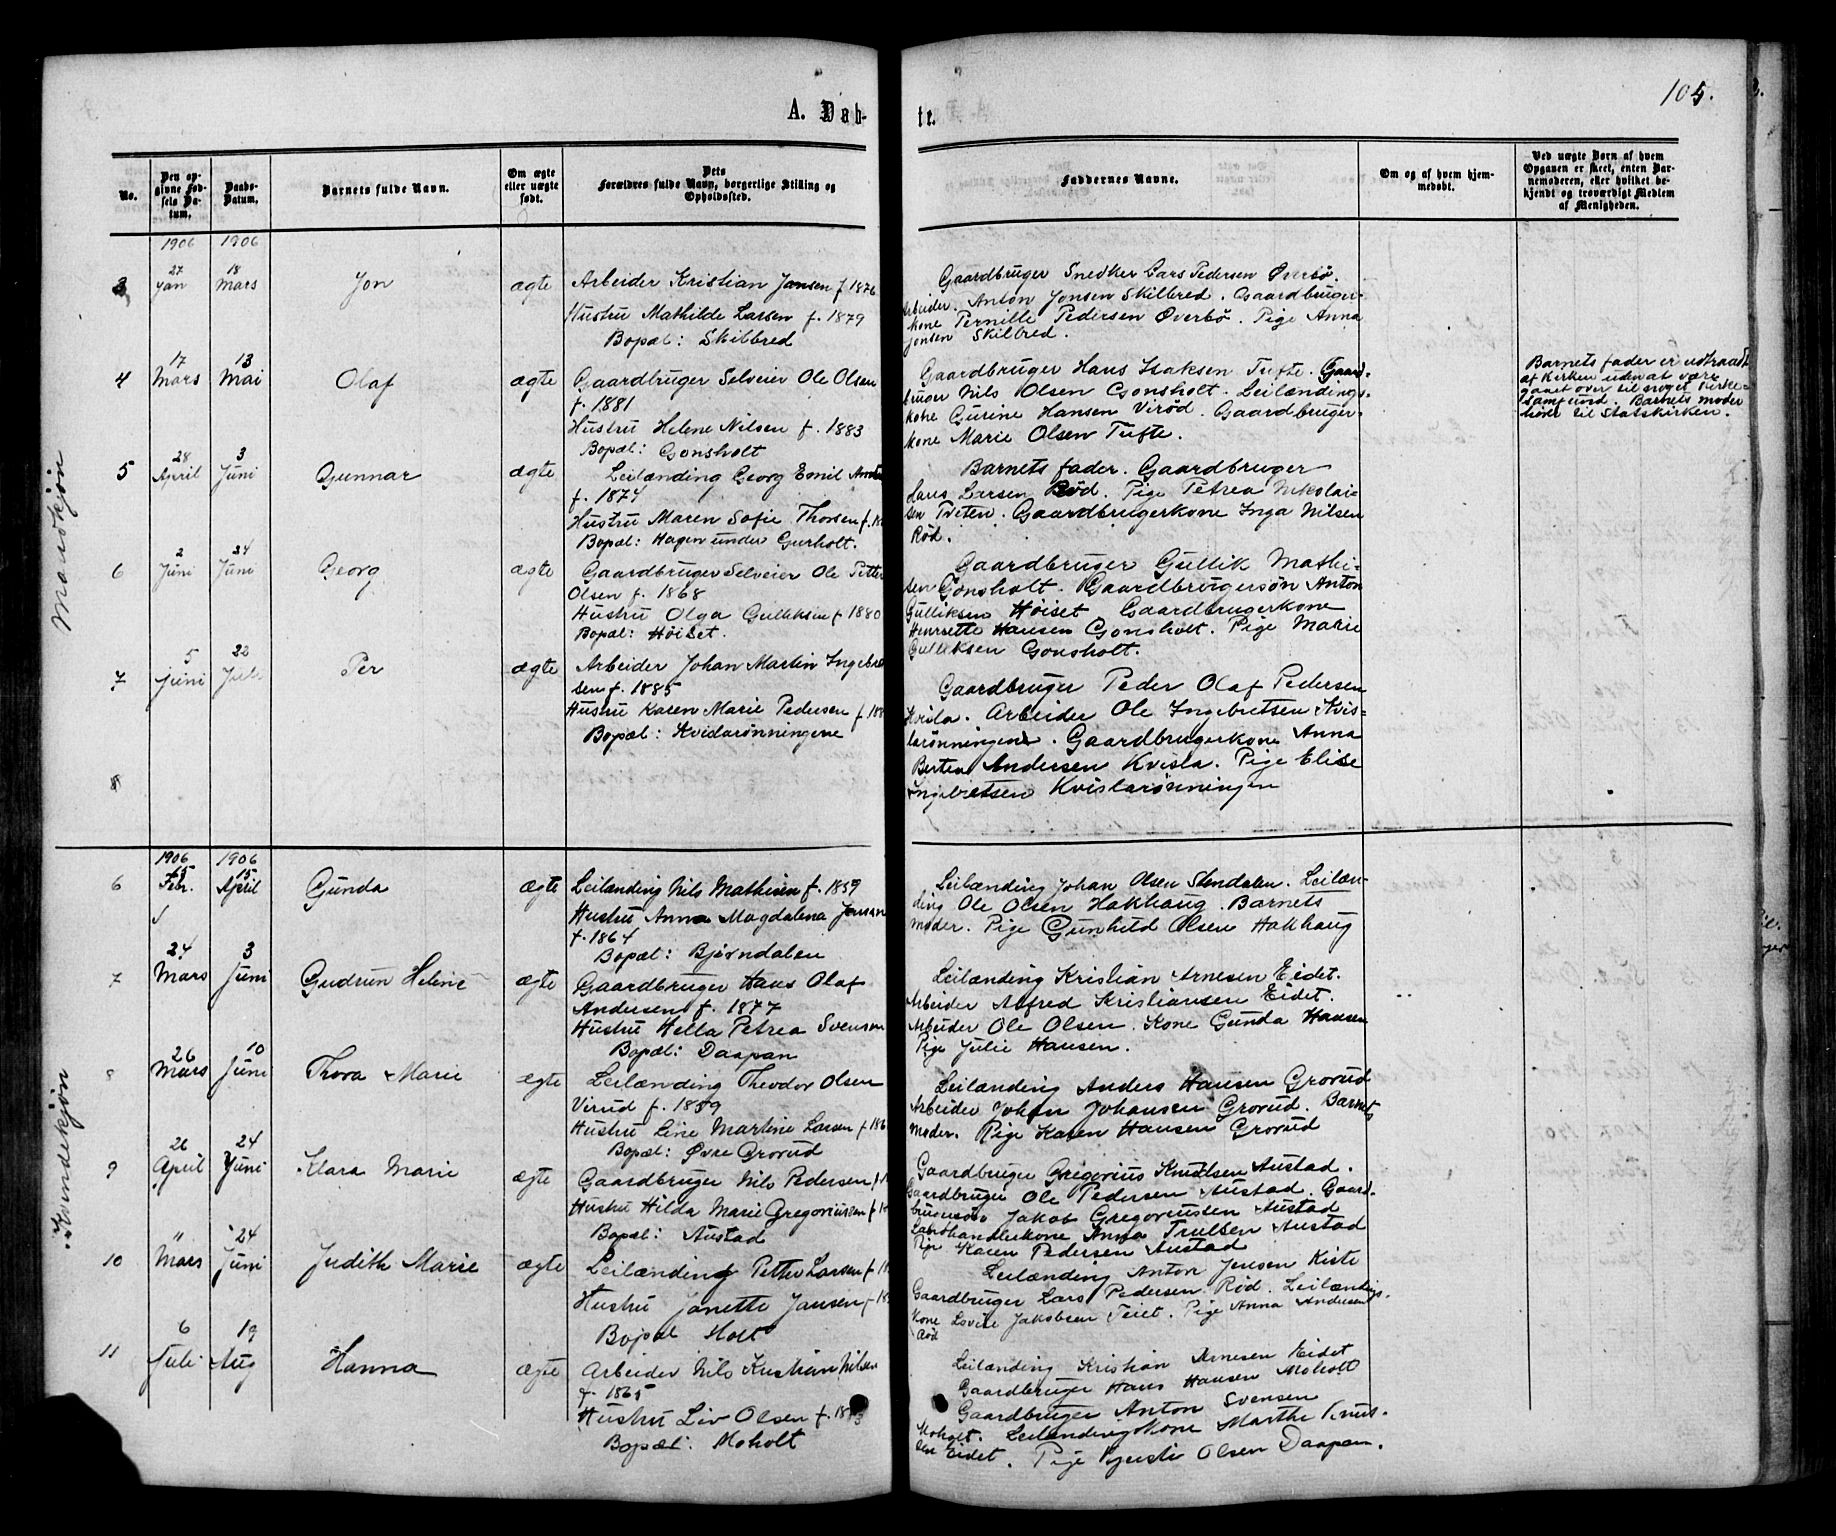 105.
A. Døb-
te.
No.
Den op-
givne Fød-
sels Da-
tum.
Daabs-
Datum.
Barnets fulde Navn.
Om ægte
eller uægte
født.
Dets
Forældres fulde Navn, borgerlige Stilling og
Opholdssted.
Faddernes Navne.
Om og af hvem hjem-
medøbt.
Ved uægte Børn af hvem
Opgaven er skeet, enten Bar-
nemoderen, eller hvilket be-
kjendt og troværdigt Medlem
af Menigheden.
Mandkjøn
1906 1906
3
27
Jan
18
Mars
Jon
ægte
Arbeider Kristian Jansen f. 1876
Hustru Mathilde Larsen f. 1879
Bopæl: Skilbred
Gaardbruger Snedker Lars Pedersen Øverbø.
Arbeider. Anton Jonsen Skilbred. Gaardbruger-
kone Pernille Pedersen Øverbø. Pige Anna
Jonsen Skilbred.
4
17
Mars
13
Mai
Olaf
ægte
Gaardbruger Selveier Ole Olsen
f. 1881
Hustru Helene Nilsen f. 1883
Bopæl: Gonsholt
Gaardbruger Hans Isaksen Tufte. Gaard-
bruger Nils Olsen Gonsholt. Leilændings-
kone Gurine Hansen Virød. Gaardbruger-
kone Marie Olsen Tufte.
Barnets fader er udtraadt
af Kirken uden at være
gaaet over til noget Kirke-
samfund. Barnets moder
hører til Statskirken.
5
28
April
3
Juni
Gunnar
ægte
Leilænding Georg Emil
f. 1874
Hustru Maren Sofie Thorsen f.
Bopæl: Hagen under Gurholt.
Barnets fader. Gaardbruger
Hans Larsen Rød. Pige Petrea Nikolai-
sen Tveten. Gaardbrugerkone Inga Nilsen
Rød.
6
2
Juni
24
Juni
Georg
ægte
Gaardbruger Selveier Ole Petter
Olsen f. 1868
Hustru Olga Gulliksen f 1880
Bopæl: Høiset.
Gaardbruger Gullik Mathi-
sen Gonsholt. Gaardbrugersøn Anton
Gulliksen Høiset Gaardbrugerkone
Henrsette Hansen Gonsholt. Pige Marie
Gulliksen Gonsholt.
7
5
Juni
22
Juli
Per
ægte
Arbeider Johan Martin Ingebret
sen f. 1885
Hustru Karen Marie Pedersen f 188
Bopæl: Kvidarønningene
Gaardbruger Peder Olaf Pedersen
Kvisla. Arbeider Ole Ingebretsen Kvis-
larønningen. Gaardbrugerkone Anna
Bertea Andersen Kvisla. Pige Elise
Ingebretsen Kvislarønningen
8
Kvindekjøn
1906 1906
6
15
Febr.
15
April
Gunda
ægte
Leilænding Nils Mathisen f. 1859
Hustru Anna Magdalena Jansen
f. 1864
Bopæl: Bjørndalen
Leilænding Johan Olsen Stendalen. Leilæn-
ding Ole Olsen Hakhaug. Barnets
moder. Pige Gunhild Olsen Hakhaug
7
24
Mars
3
Juni
Gudrun Helene
ægte
Gaardbruger Hans Olaf
Andersen f. 1877
Hustru Hella Petrea Svensen
Bopæl: Daapan
Leilænding Kristian Arnesen Eidet.
Arbeider Alfred Kristiansen Eidet.
Arbeider Ole Olsen. Kone Gunda Hansen
Pige Julie Hansen.
8
26
Mars
10
Juni
Thora Marie
ægte
Leilænding Theodor Olsen
Virud f. 1859
Hustru Line Martine Larsen f 186
Bopæl: Øvre Grorud
Leilænding Anders Hansen Grorud
Arbeider Johan Johansen Grorud. Barnets
Moder. Pige Karen Hansen Grorud
9
26
April
24
Juni
Klara Marie
ægte
Gaardbruger Nils Pedersen f
Hustru Hilda Marie Gregoriussen f
Bopæl: Austad
Gaardbruger Gregorius Knudtsen Austad.
Gaardbruger Ole Pedersen Austad. Gaard-
brugersøn Jakob Gregoriussen Austad
Landhandlerkone Anna Trulsen Austad
Pige Karen Pedersen Austad
10
11
Mars
24
Juni
Judith Marie
ægte
Leilænding Petter Larsen f 18
Hustru Janette Jansen f 18
Bopæl Holt
Leilænding Anton Jensen Kiste
Gaardbruger Lars Pedersen Rød. Leilændings-
kone Lovise Jakobsen Teiet. Pige Anna Andersen
Rød
11
6
Juli
19
Aug
Hanna
ægte
Arbeider Nils Kristian Nilsen
f. 1865
Hustru Liv Olsen f. 18
Bopæl: Moholt
Leilænding Kristian Arnesen Eidet
Gaardbruger Hans Hansen Moholt
Gaardbruger Anton Svensen
Moholt. Leilændingskone Marthe Knud-
sen Eidet. Pige Kjersti Olsen Daapan.